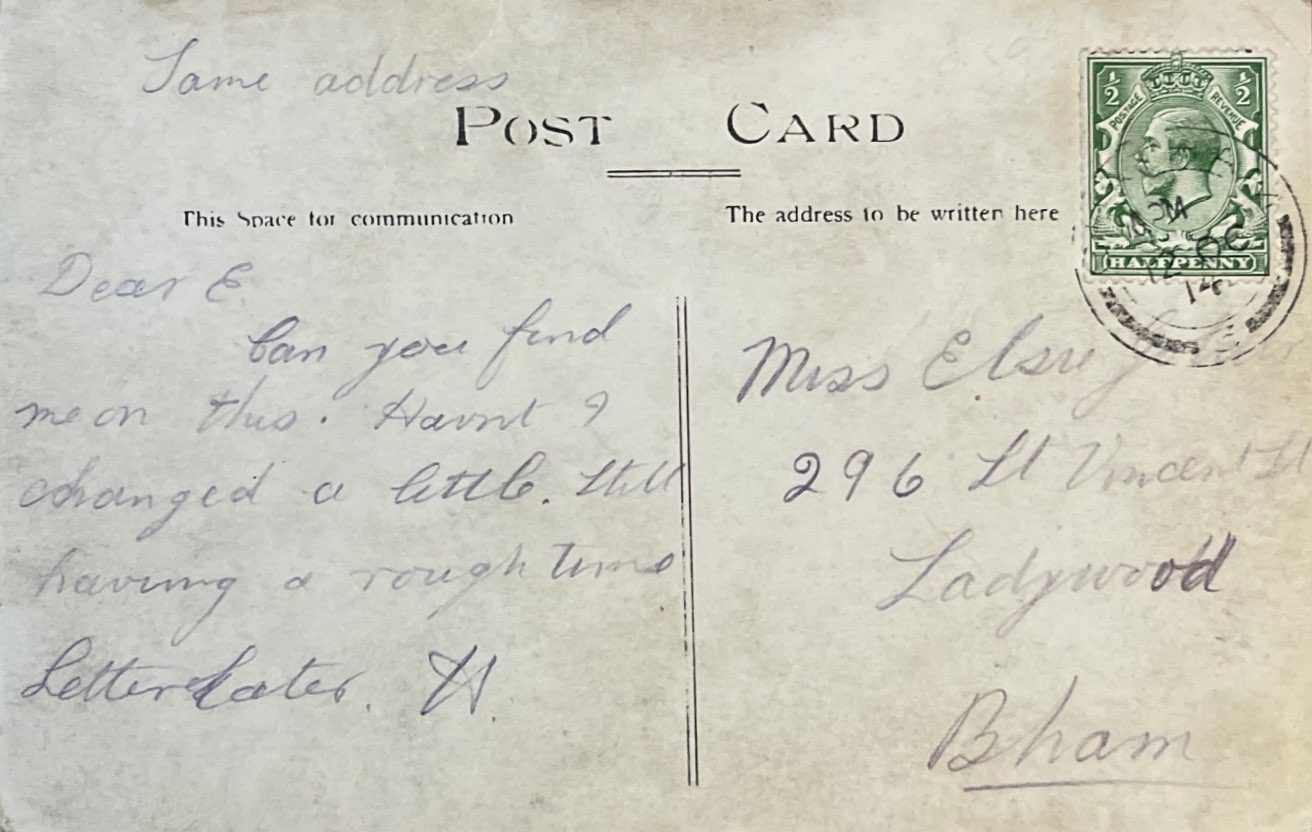 Same address
POST CARD
This Space for communication
The address to be written here
½ ½
POSTAGE REVENUE
HALFPENNY
PM
12 OC
14
Dear E.
Can you find
me on this. Havnt I
changed a little. Still
having a rough time
Letter Later. H.
Miss Elsie
296 St Vincent St
Ladywood
Bham